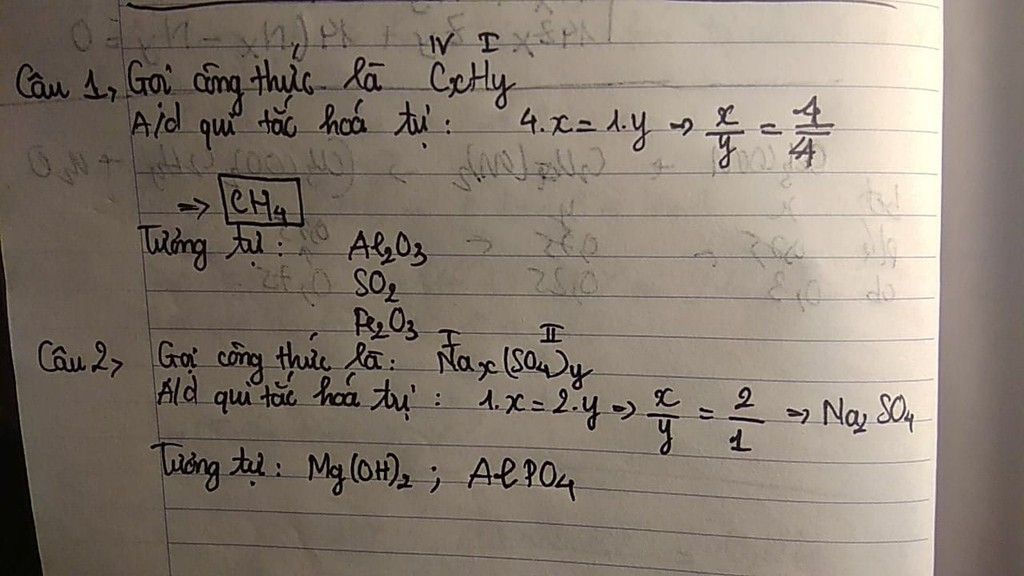 IV I
Câu 1, Gọi công thức là CxHy
A/d qui tắc hoá trị : 4.x = 1.y => x/y = 4/4
=> CH4
Tương tự : Al2O3
SO2
Fe2O3
I II
Câu 2, Gọi công thức là : Nax(SO4)y
A/d qui tắc hoá trị : 1.x = 2.y => x/y = 2/1 => Na2SO4
Tương tự : Mg(OH)2 ; AlPO4